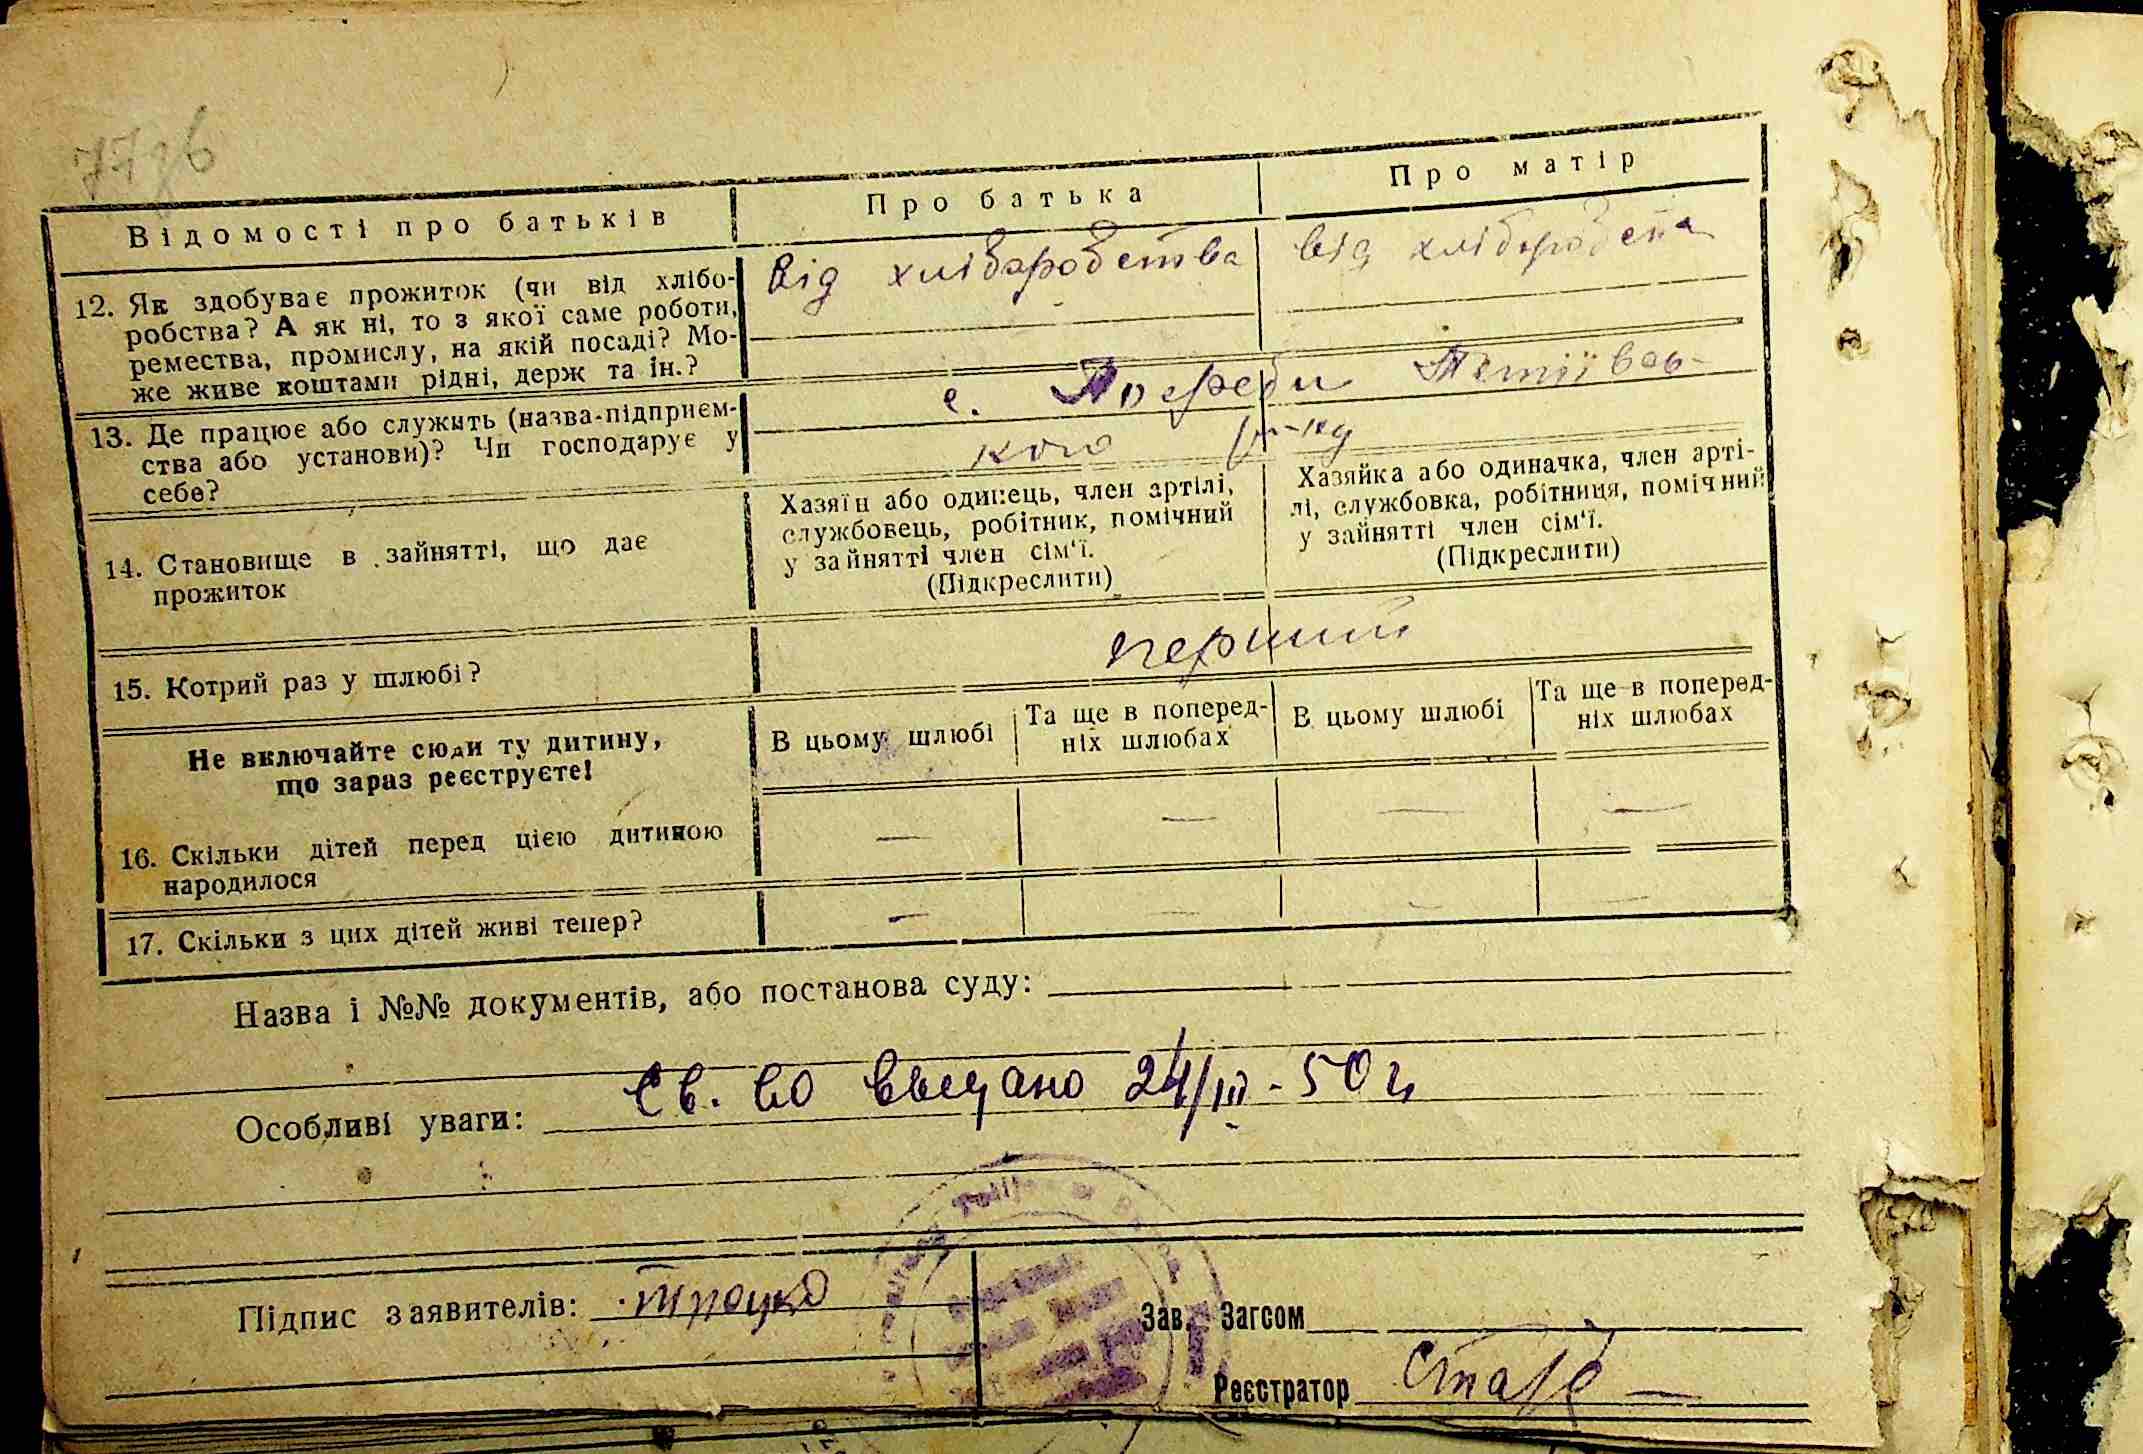 77зв
Відомості про батьків
Про батька
Про матір
12. Як здобуває прожиток (чи від хлібо-
робства? А як ні, то з якої саме роботи,
ремества, промислу, на якій посаді? Мо-
же живе коштами рідні, держ та ін.?
від хліборобства
від хліборобства
13. Де працює або служить (назва-підприєм-
ства або установи)? Чи господарує у
себе?
с. Погреби Тетіївсь-
кого р-ну
14. Становище в зайнятті, що дає
прожиток
Хазяїн або одинець, член артілі,
службовець, робітник, помічний
у зайнятті член сім'ї.
(Підкреслити)
Хазяйка або одиначка, член арті-
лі, службовка, робітниця, помічний
у зайнятті член сім'ї.
(Підкреслити)
15. Котрий раз у шлюбі?
перший
Не включайте сюди ту дитину,
що зараз реєструєте!
В цьому шлюбі
Та ще в поперед-
ніх шлюбах
В цьому шлюбі
Та ще в поперед-
ніх шлюбах
16. Скільки дітей перед цією дитиною
народилося
— — — —
17. Скільки з цих дітей живі тепер?
— — — —
Назва і №№ документів, або постанова суду:
Особливі уваги: Св. во выдано 24/III-50 г
Підпис заявителів:
Зав. Загсом
Реєстратор